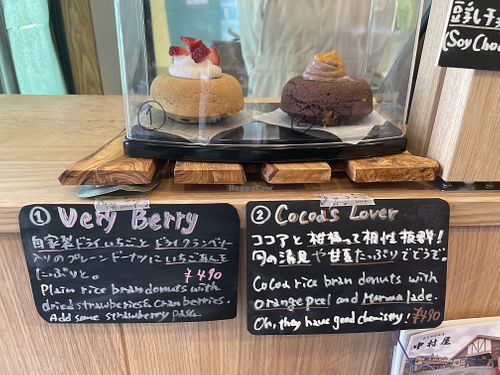 豆乳チョ
(Soy Cho
①
②
HappyCow
① Very Berry
自家製ドライいちごと ドライクランベリー
入りのプレーンドーナツにいちごあんを
たっぷりと。 ¥490
Plain rice bran donuts with
dried strawberries & Cranberries.
Add some strawberry paste.
② Cocoas Lover
ココアと柑橘って相性抜群!
冬の湯見や甘夏たっぷりでどうぞ。
Cocoa rice bran donuts with
orange peel and Murmalade.
Oh, they have good chemistry! ¥490
中村屋